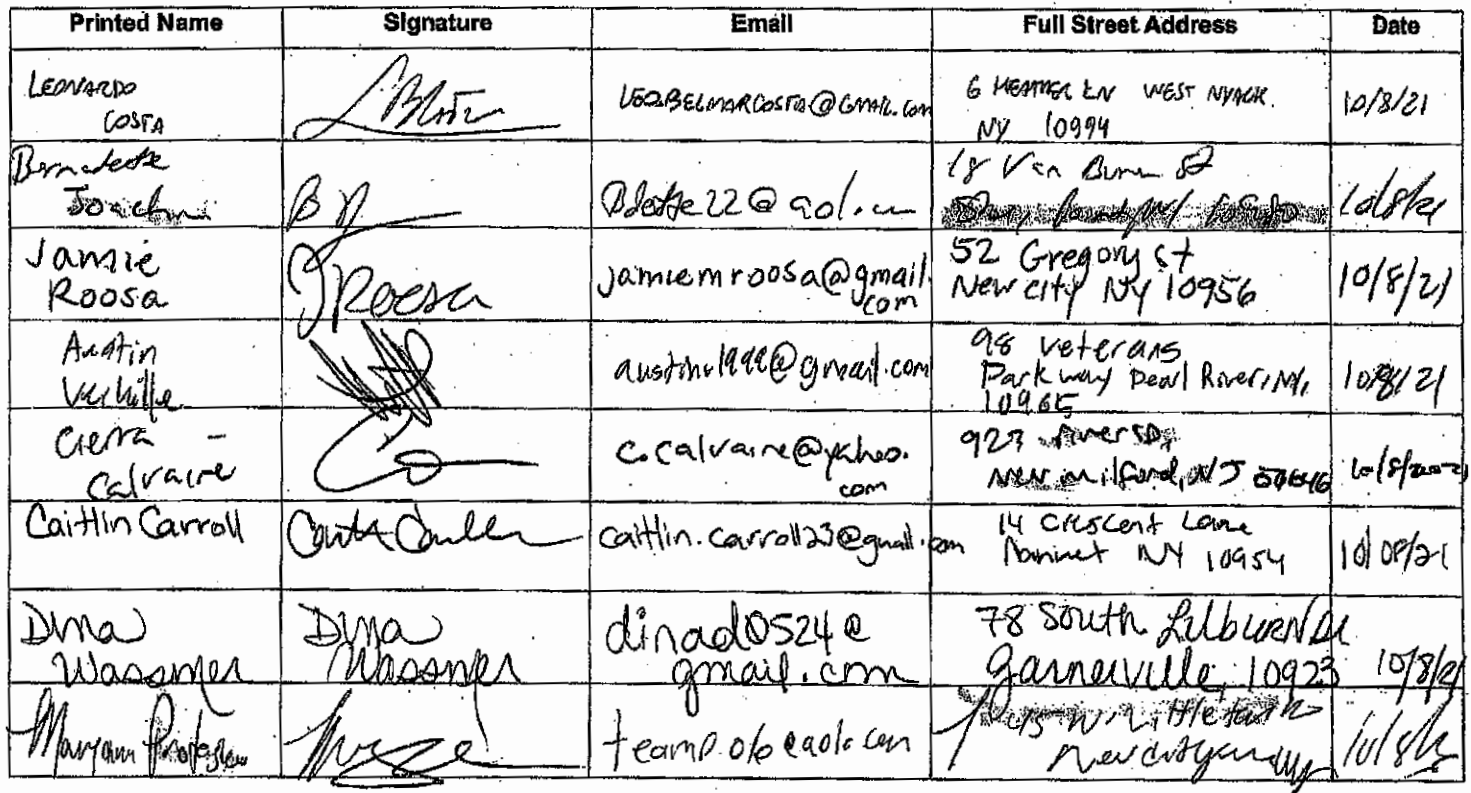 Printed Name Signature Email Full Street Address Date
LEONARDO
COSTA
LEO.BELMARCOSTA@GMAIL.COM
6 HEATHER LN WEST NYACK
NY 10994
10/8/21
Bernadette
Joachim
18 Van Buren St
10/8/21
Jamie
Roosa
JRoosa
jamiemroosa@gmail.
com
52 Gregory St
New City NY 10956
10/8/21
Austin
98 Veterans
Parkway Pearl River, NY,
10965
10/8/21
Cierra -
Calvaire
c.calvaire@yahoo.
com
923 River Rd,
New milford, NJ
10/8/2021
Caitlin Carroll
caitlin.carroll23@gmail.com
14 Crescent Lane
Nanuet NY 10954
10/08/21
Dina
Wassmer
Dina
Wassmer
dinad0524@
gmail.com
78 South Lilburn Dr
Garnerville, 10923
10/8/21
Maryann
New City
10/8/21